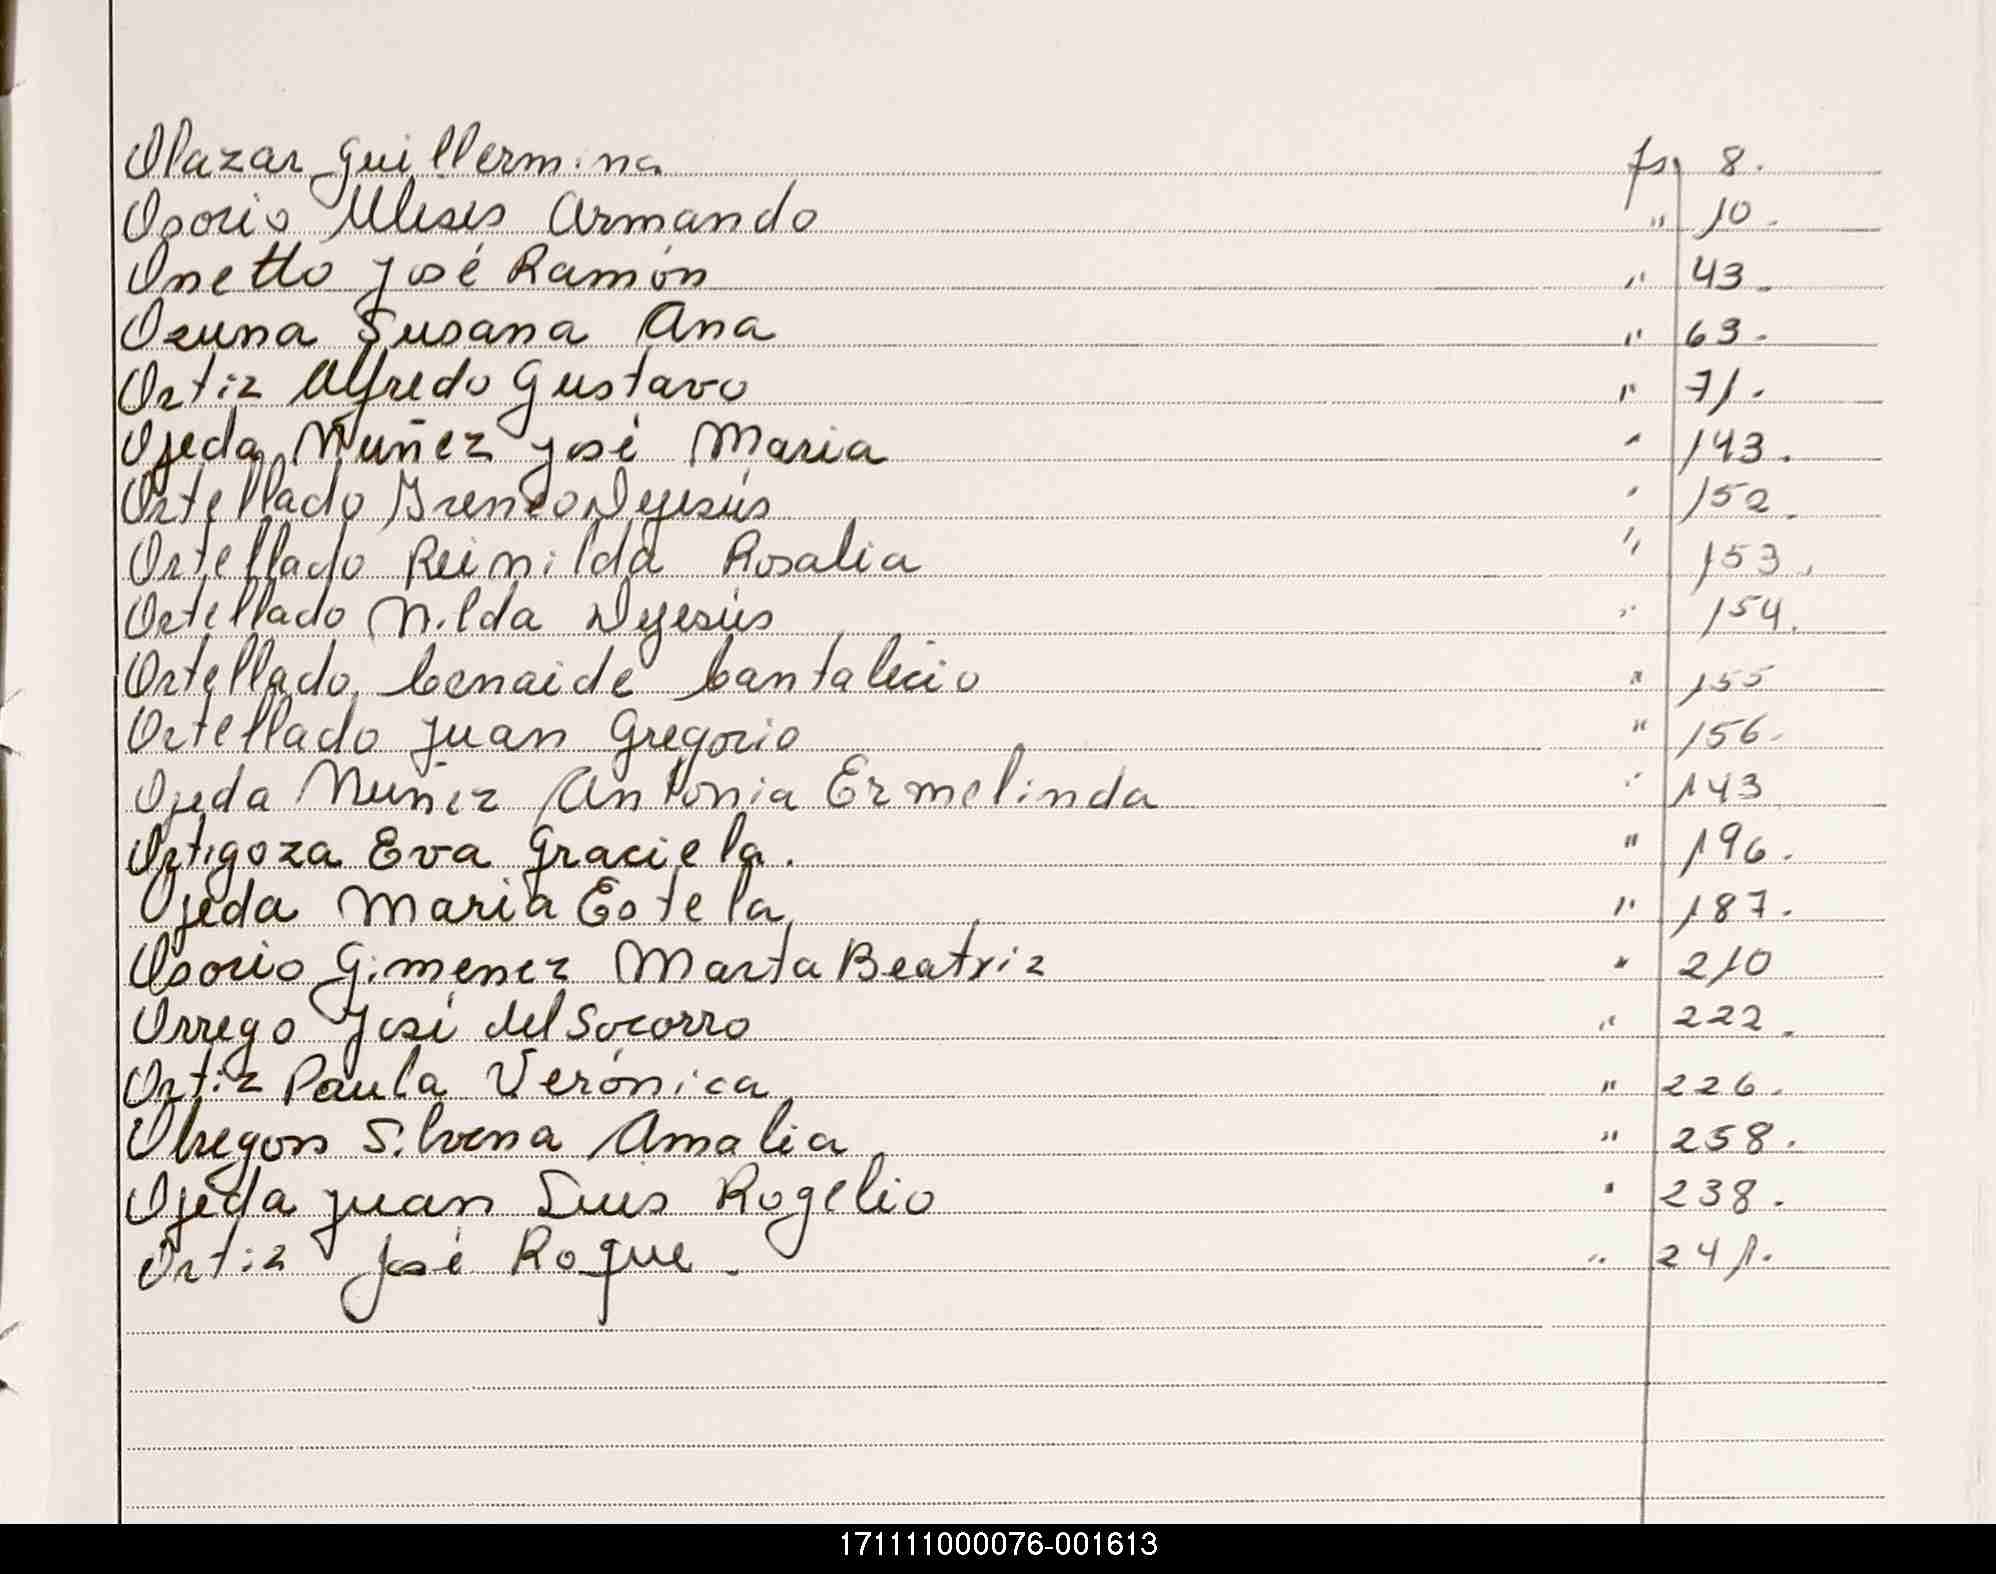 Olazar Guillermina fs, 8.
Osorio Ulises Armando " 10.
Onetto José Ramón " 43.
Ozuna Susana Ana " 63.
Ortiz Alfredo Gustavo " 71.
Ojeda Nuñez José Maria " 143.
Ortellado Ireneo Dejesús " 152.
Ortellado Reinilda Rosalia " 153.
Ortellado Nilda Dejesús " 154.
Ortellado Cenaide Cantalicio " 155
Ortellado Juan Gregorio " 156.
Ojeda Nuñez Antonia Ermelinda " 143
Ortigoza Eva Graciela. " 196.
Ojeda Maria Estela " 187.
Osorio Gimenez Marta Beatriz " 210
Orrego José del Socorro " 222.
Ortiz Paula Verónica " 226.
Obregon Silvena Amalia " 258.
Ojeda Juan Luis Rogelio " 238.
Ortiz José Roque. " 241.
171111000076-001613